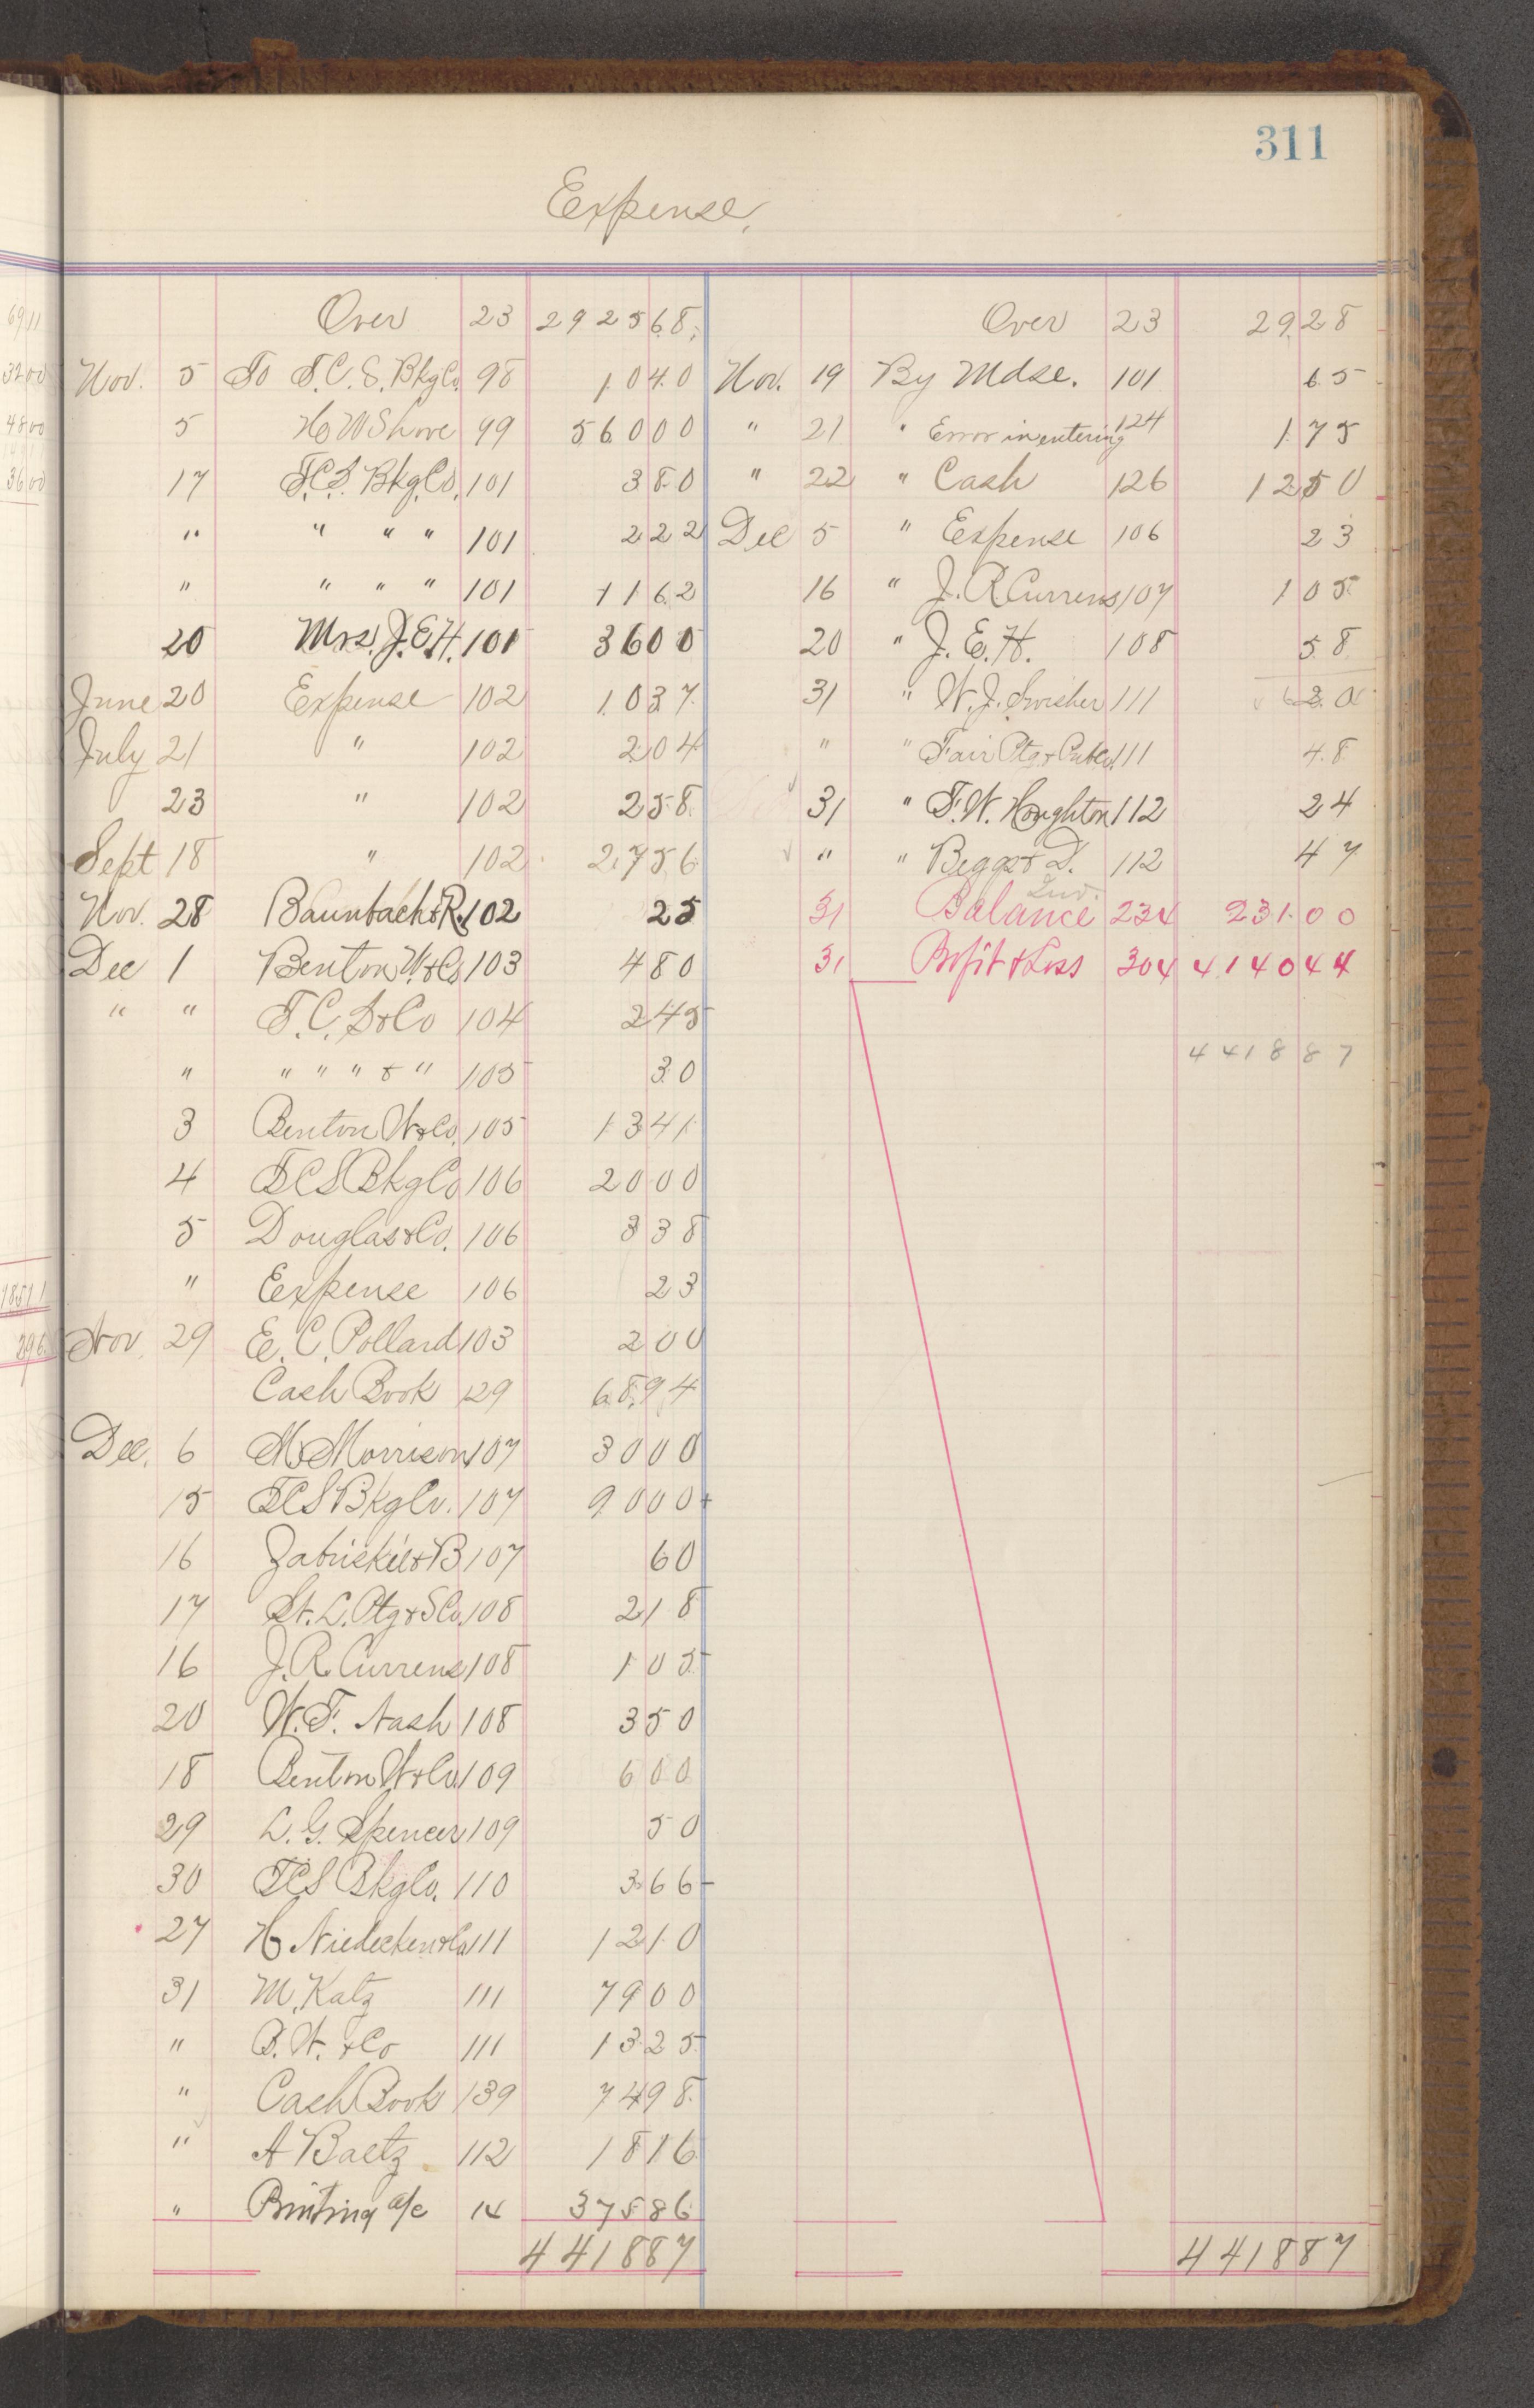 311
Expense,
Over 23 2925 68
Nov. 5 To F.C.S. Bkg Co. 98 10 40
5 H W Shove 99 560 00
17 F.C.S. Bkg Co. 101 3 80
" " " " 101 2 22
" " " " 101 11 62
20 Mrs. J.E.H. 101 36 00
June 20 Expense 102 10 37
July 21 " 102 2 04
23 " 102 2 58
Sept 18 " 102 27 56
Nov. 28 Baumbach & R. 102 25
Dec 1 Benton W. & Co 103 4 80
" " F.C. S & Co 104 2 45
" " " " & " 105 30
3 Benton W. & Co. 105 13 41
4 F C S Bkg Co 106 20 00
5 Douglas & Co. 106 3 38
" Expense 106 23
Nov. 29 E. C. Pollard 103 2 00
Cash Book 129 68 94
Dec. 6 M Morrison 107 30 00
15 F C S Bkg Co. 107 90 00
16 Zabriskie & B 107 60
17 St. L. Ptg & S Co. 108 2 18
16 J. R. Currens 108 1 05
20 W. F. Nash 108 3 50
18 Benton W & Co 109 6 00
29 L. G. Spencer 109 50
30 F C S Bkg Co. 110 3 66
27 H Niedecken & Co 111 12 10
31 M. Katz 111 79 00
" B. W. & Co 111 13 25
" Cash Book 139 74 98
" A Baetz 112 18 16
" Printing a/c 14 375 86
4418 87
Over 23 29 28
Nov. 19 By Mdse. 101 65
" 21 " Error in entering 124 1 75
" 22 " Cash 126 12 50
Dec 5 " Expense 106 23
16 " J. R. Currens 107 1 05
20 " J. E. H. 108 58
31 " W. J. Swisher 111
" " Fair Ptg & 111 48
31 " F. W. Houghton 112 24
" " Beggs & D. 112 47
Inv.
31 Balance 234 231 00
31 Profit & Loss 304 4140 44
4418 87
4418 87